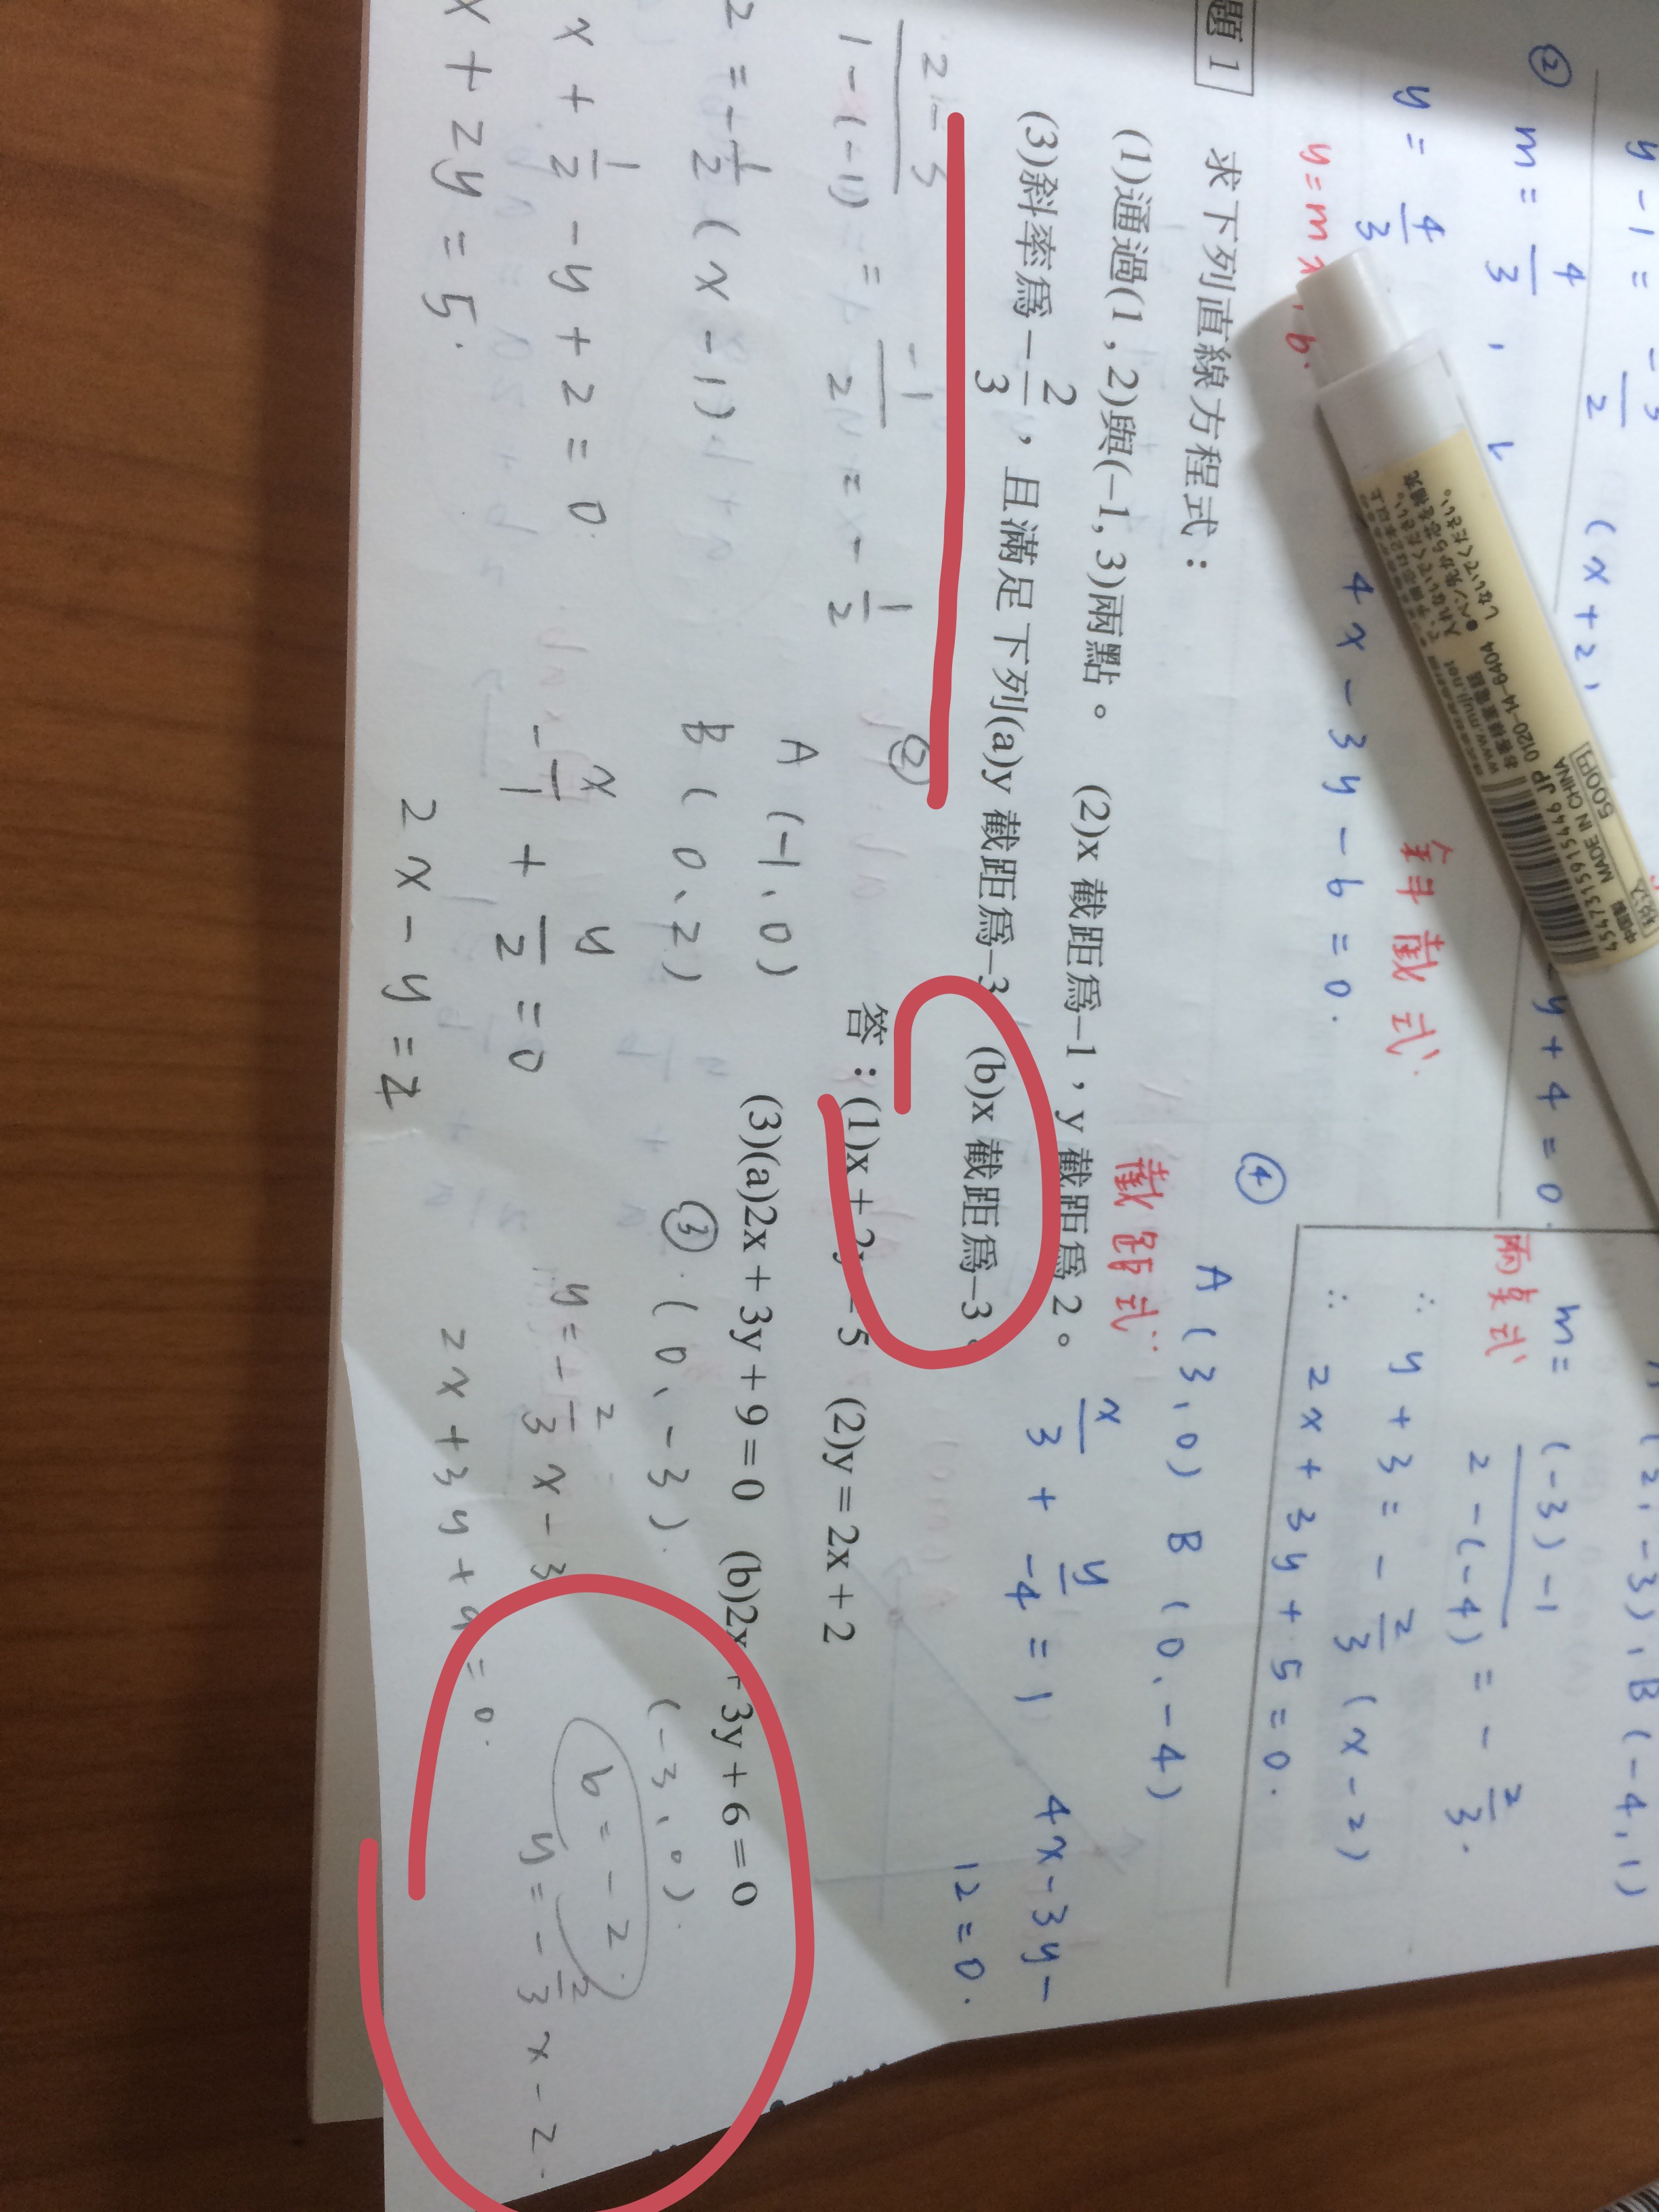 y-1=
(x+2)
② m=4/3,
y=4/3
4x-3y-6=0.
斜截式
y+4=0
題1 求下列直線方程式：
(1)通過(1,2)與(-1,3)兩點。 (2)x 截距為-1，y 截距為 2。
(3)斜率為-2/3，且滿足下列(a)y 截距為-3 (b)x 截距為-3。
答：(1)x+2y=5 (2)y=2x+2
(3)(a)2x+3y+9=0 (b)2x+3y+6=0
兩點式
m=(-3)-1/2-(-4)=-2/3.
∴ y+3=-2/3(x-2)
∴ 2x+3y+5=0.
④ A(3,0) B(0,-4)
截距式:
x/3+y/-4=1
4x-3y-
12=0.
2-3/1-(-1)=-1/2=-1/2
2=-1/2(x-1)
x+1/2-y+2=0.
x+2y=5.
②
A(-1,0)
B(0,2)
x/-1+y/2=0
2x-y=2
③.(0,-3).
y=-2/3x-3
2x+3y+9=0.
(-3,0).
b=-2.
y=-2/3x-2.
お客様相談室電話
www.muji.net
0120-14-6404
500円
MADE IN CHINA
4547315915446 JP